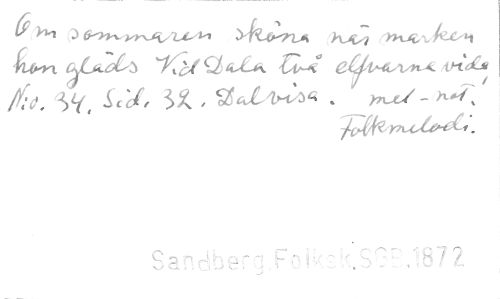 Om sommaren sköna när marken
hon gläds Vid Dala två elfvarna vida,
No. 34. Sid. 32. Dalvisa. mel-not.
Folkmelodi.
Sandberg.Folksk.SGB.1872